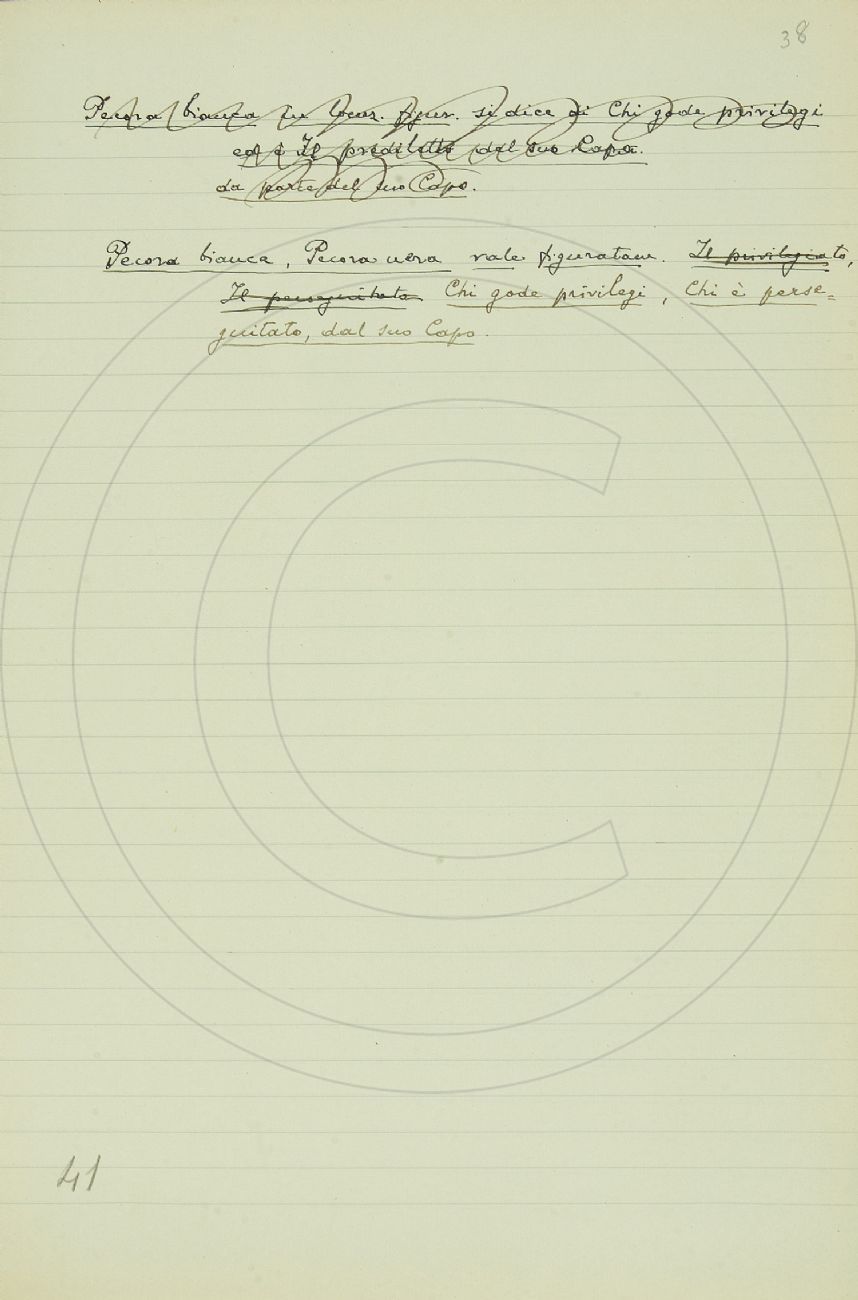 38
Pecora bianca in locuz. figur. si dice di Chi gode privilegi
ed è Il prediletto dal suo Capo.
da parte del suo Capo.
Pecora bianca, Pecora nera vale figuratam. Il privilegiato,
Il perseguitato Chi gode privilegi, Chi è perse=
guitato, dal suo Capo.
41